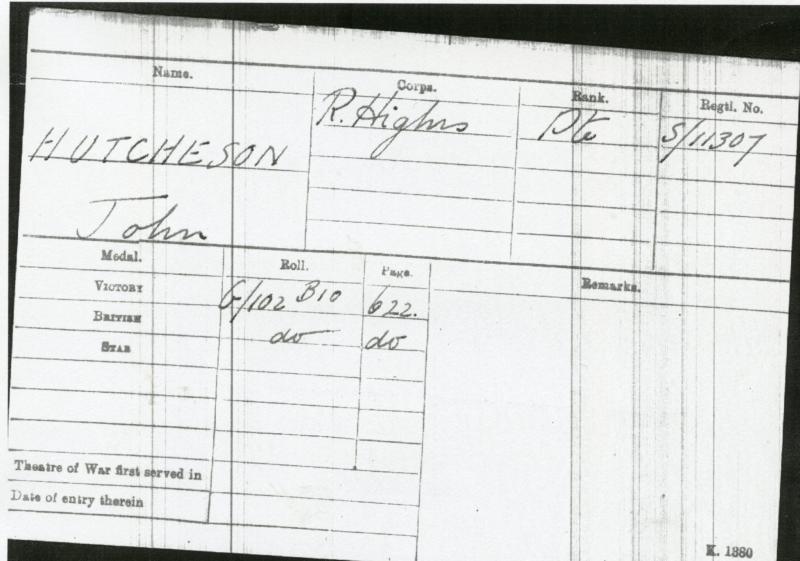 Name. Corps. Rank. Regtl. No.
R. Highrs Pte S/11307
HUTCHESON
John
Medal. Roll. Page. Remarks.
VICTORY G/102 B10 622.
BRITISH do do
STAR
Theatre of War first served in
Date of entry therein
K. 1380